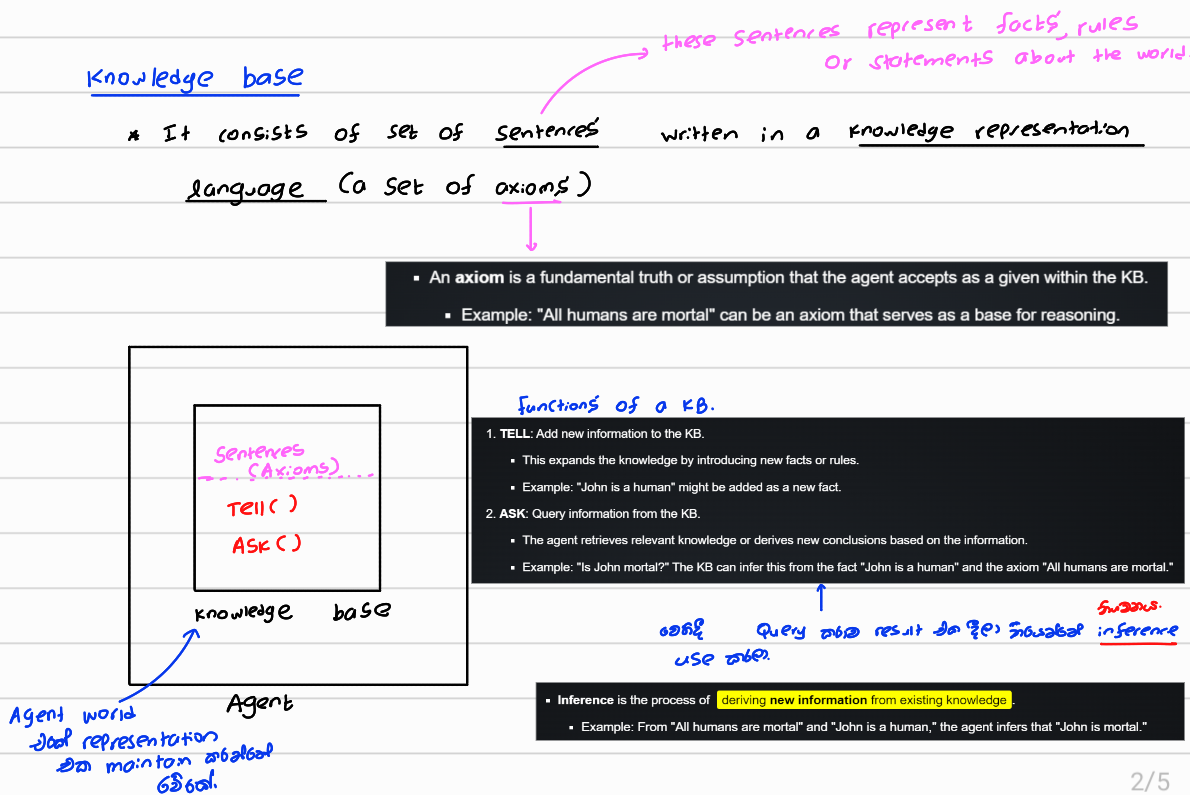 these sentences represent facts, rules
or statements about the world.
Knowledge base
* It consists of set of sentences written in a knowledge representation
language (a set of axioms)
▪ An axiom is a fundamental truth or assumption that the agent accepts as a given within the KB.
▪ Example: "All humans are mortal" can be an axiom that serves as a base for reasoning.
functions of a KB.
1. TELL: Add new information to the KB.
▪ This expands the knowledge by introducing new facts or rules.
▪ Example: "John is a human" might be added as a new fact.
2. ASK: Query information from the KB.
▪ The agent retrieves relevant knowledge or derives new conclusions based on the information.
▪ Example: "Is John mortal?" The KB can infer this from the fact "John is a human" and the axiom "All humans are mortal."
Sentences
(Axioms)
Tell( )
ASK( )
Knowledge base
Agent
Query කරාම result එක දීලා තියෙන්නේ inference
use කරලා.
▪ Inference is the process of deriving new information from existing knowledge.
▪ Example: From "All humans are mortal" and "John is a human," the agent infers that "John is mortal."
Agent world
එකේ representation
එක maintain කරන්නේ
මේකේ.
2/5